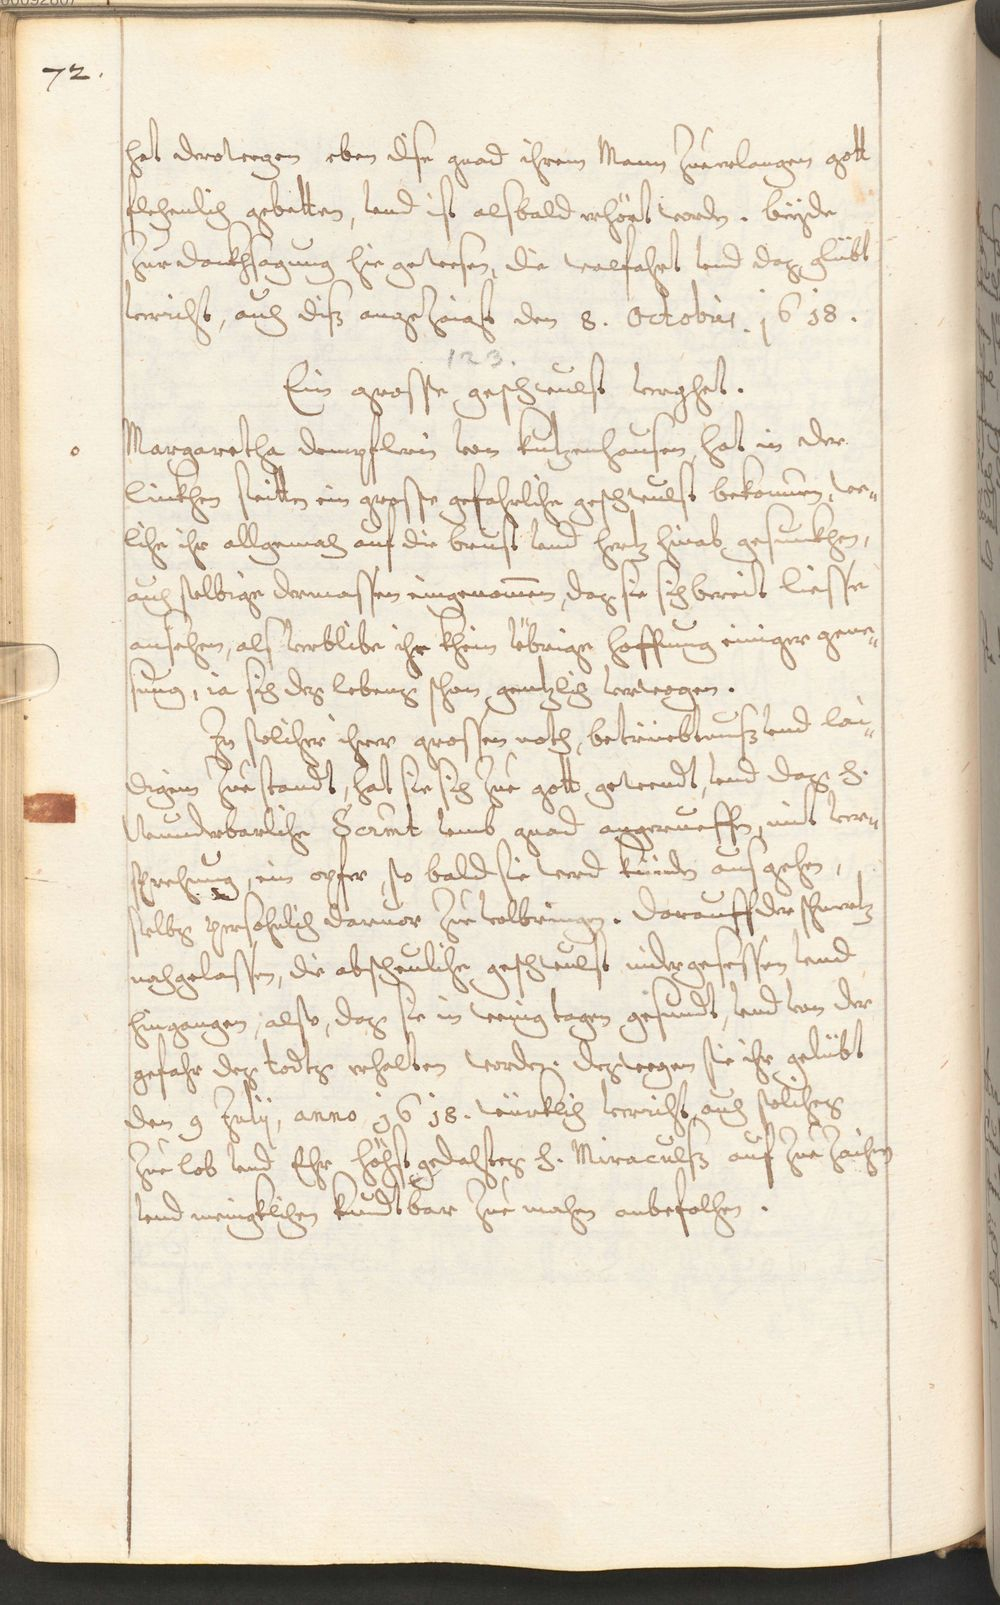 72.
hat derowegen eben dise gnad ihrem Mann zuerlangen gott
flehenlich gebetten, vnd ist alsbald erhört worden. beÿde
zur danckhsagung hie gewesen, die walfahrt vnd daz glübt
verricht, auch diß angezaigt den 8. Octobris. 1618.
123.
Ein grosse geschwulst vergeht.
Margaretha dempflerin von kutzenhausen, hat in der
linckhen seitten ein grosse gefahrliche geschwulst bekommen, we-
liche ihr allgemach auf die brust vnd hertz hinab gesunckhen,
auch selbige dermassen eingenommen, daz sie sich bereit liesse
ansehen, als verblibe ihr khein übrige hoffnung einiger gene-
sung, ia sich dez lebens schon gentzlich verwegen.
In solicher ihrer grossen noth, betrüebtnuß vnd lai-
digem zuestandt, hat sie sich zue gott gewendt, vnd daz h.
Wunderbarliche Sacrament vmb gnad angerueffen, mit ver-
sprechung, ein opfer, so bald sie werd künden aus gehen,
selbs persohnlich darvor zue volbringen. darauff der schmertz
nachgelassen, die abscheuliche geschwulst nidergesessen vnd
hingangen, also, daz sie in wenig tagen gesundt, vnd von der
gefahr dez todts erhalten worden. deswegen sie ihr gelübt
den 9 Julij, anno 1618. würklich verricht, auch soliches
zue lob vnd Ehr höchstgedachtes h. Miraculß auf zue zaichnen
vnd menigklichen kundtbar zue machen anbefolhen.